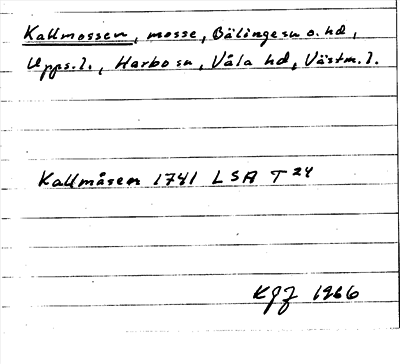 Kallmossen, mosse, Bälinge sn o. hd,
Upps. l., Harbo sn, Våla hd, Västm. l.
Kallmåsen 1741 LSA T 24
KGJ 1966